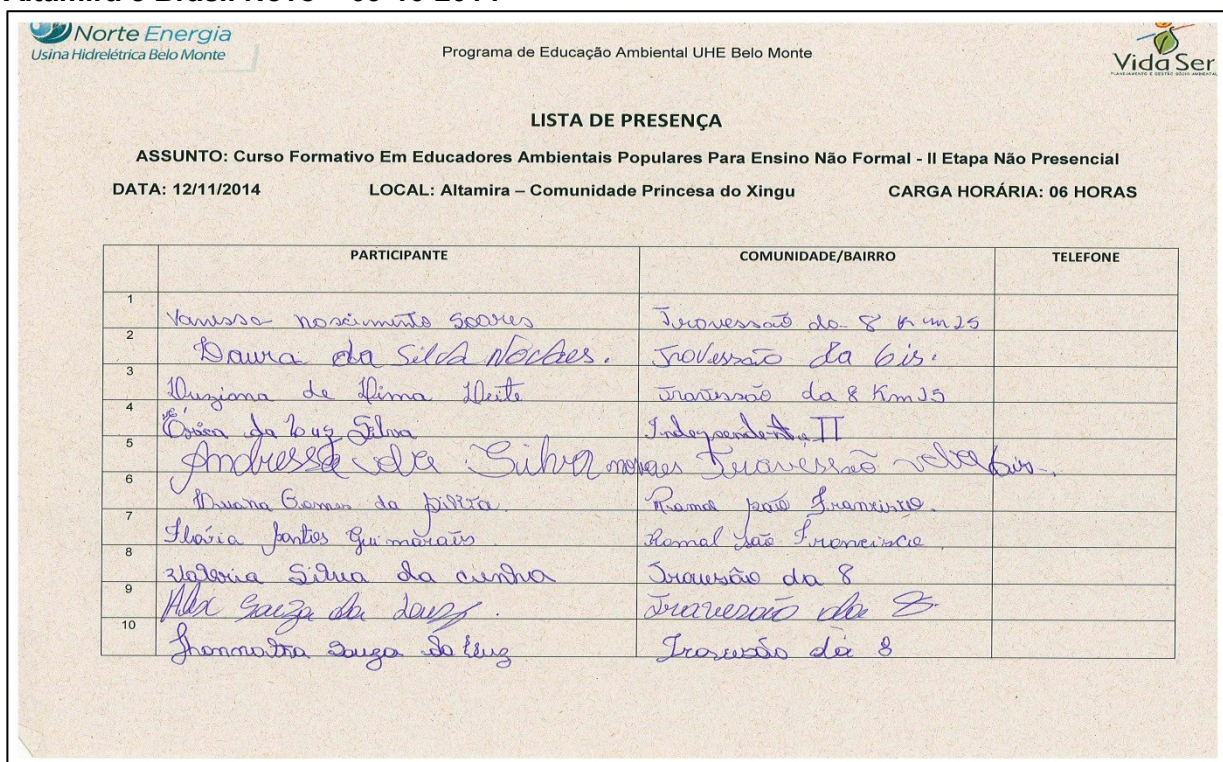 Norte Energia
Usina Hidrelétrica Belo Monte
Programa de Educação Ambiental UHE Belo Monte
Vida Ser
LISTA DE PRESENÇA
ASSUNTO: Curso Formativo Em Educadores Ambientais Populares Para Ensino Não Formal - II Etapa Não Presencial
DATA: 12/11/2014 LOCAL: Altamira – Comunidade Princesa do Xingu CARGA HORÁRIA: 06 HORAS
PARTICIPANTE COMUNIDADE/BAIRRO TELEFONE
1 Vanessa nascimento soares Travessão da 8 Km 25
2 Daura da Silva Travessão da bis.
3 Luziana de Lima Leite travessão da 8 Km
4 Érica da Luz Silva Independente II
5 Andressa da Silva moraes Travessão da bis.
6 Luana Gomes da Ramal são Francisco.
7 Flávia Guimarães Ramal são Francisco
8 Valeria Silva da cunha Travesão da 8
9 Alex Souza da Travessão da 8
10 Souza da Luz da 8